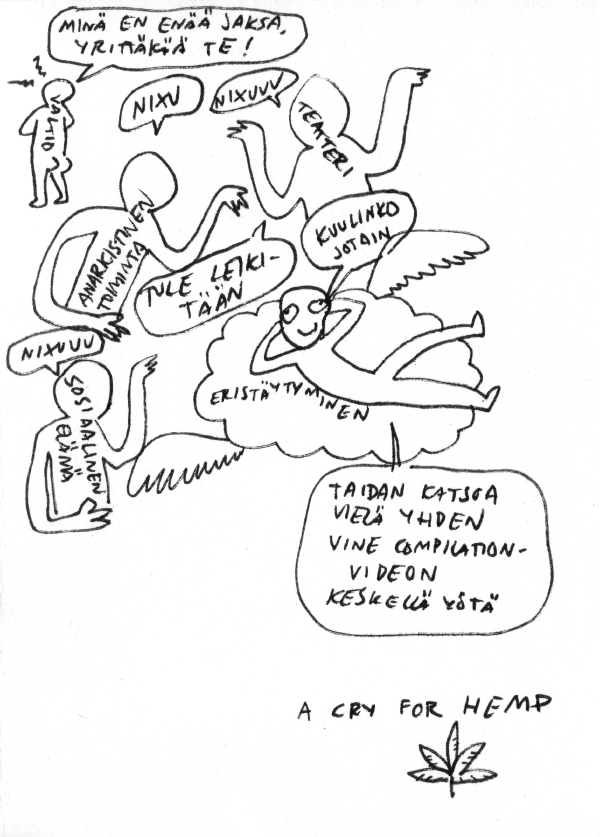 MINÄ EN ENÄÄ JAKSA,
YRITTÄKÄÄ TE!
VALTIO
NIXU
NIXUUU
TEATTERI
ANARKISTINEN
TOIMINTA
TULE LEIKI-
TÄÄN
KUULINKO
JOTAIN
NIXUUU
SOSIAALINEN
ELÄMÄ
ERISTÄYTYMINEN
TAIDAN KATSOA
VIELÄ YHDEN
VINE COMPILATION-
VIDEON
KESKELLÄ YÖTÄ
A CRY FOR HEMP